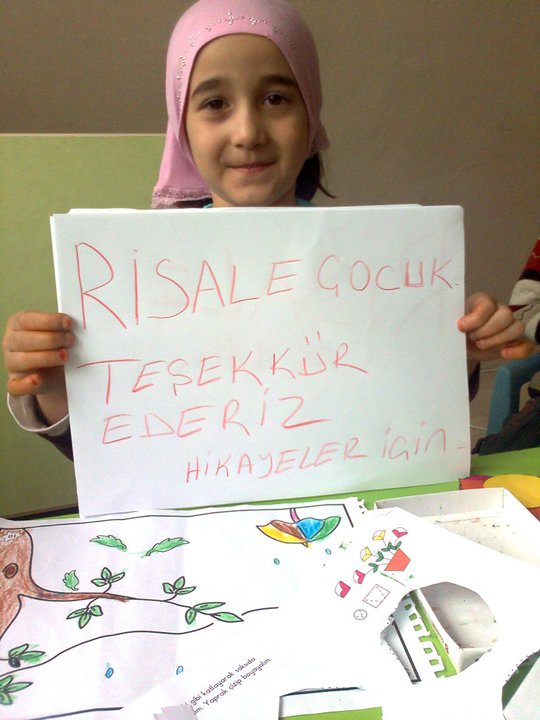 RİSALE ÇOCUK.
TEŞEKKÜR
EDERİZ
HİKAYELER İÇİN.
gibi katlayarak makasla
Yaprak çizip boyayalım.